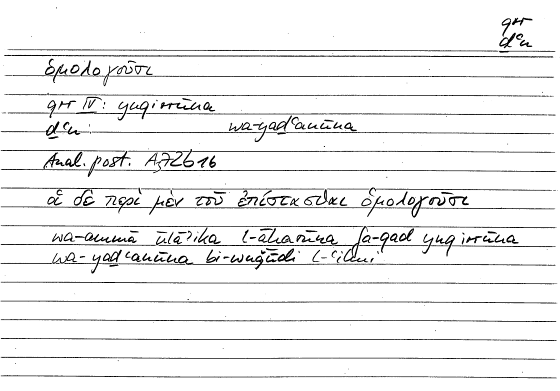 qrr
ḏʿn
ὁμολογοῦσι
qrr IV: yuqirrūna
ḏʿn: wa-yaḏʿanūna
Anal. post. A3, 72b16
οἱ δὲ περὶ μὲν τοῦ ἐπίστασθαι ὁμολογοῦσι
wa-ammā ūlāʾika l-āḫarūna fa-qad yuqirrūna
wa-yaḏʿanūna bi-wuǧūdi l-ʿilmi